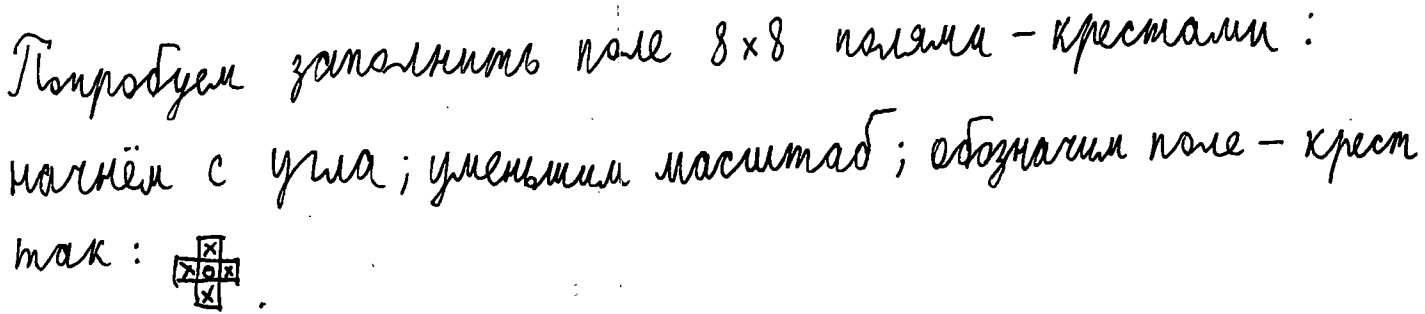 Попробуем заполнить поле 8×8 полями – крестами :
начнём с угла ; уменьшим масштаб ; обозначим поле – крест
так : x x o x x .